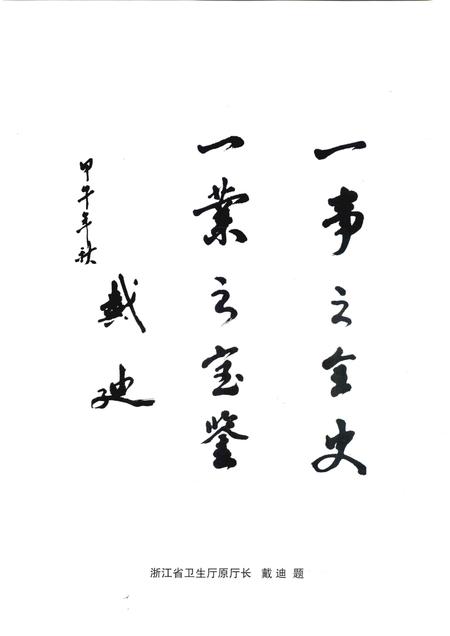 一事之全史
一業之宝鉴
甲午年秋
戴迪
浙江省卫生厅原厅长 戴迪 题